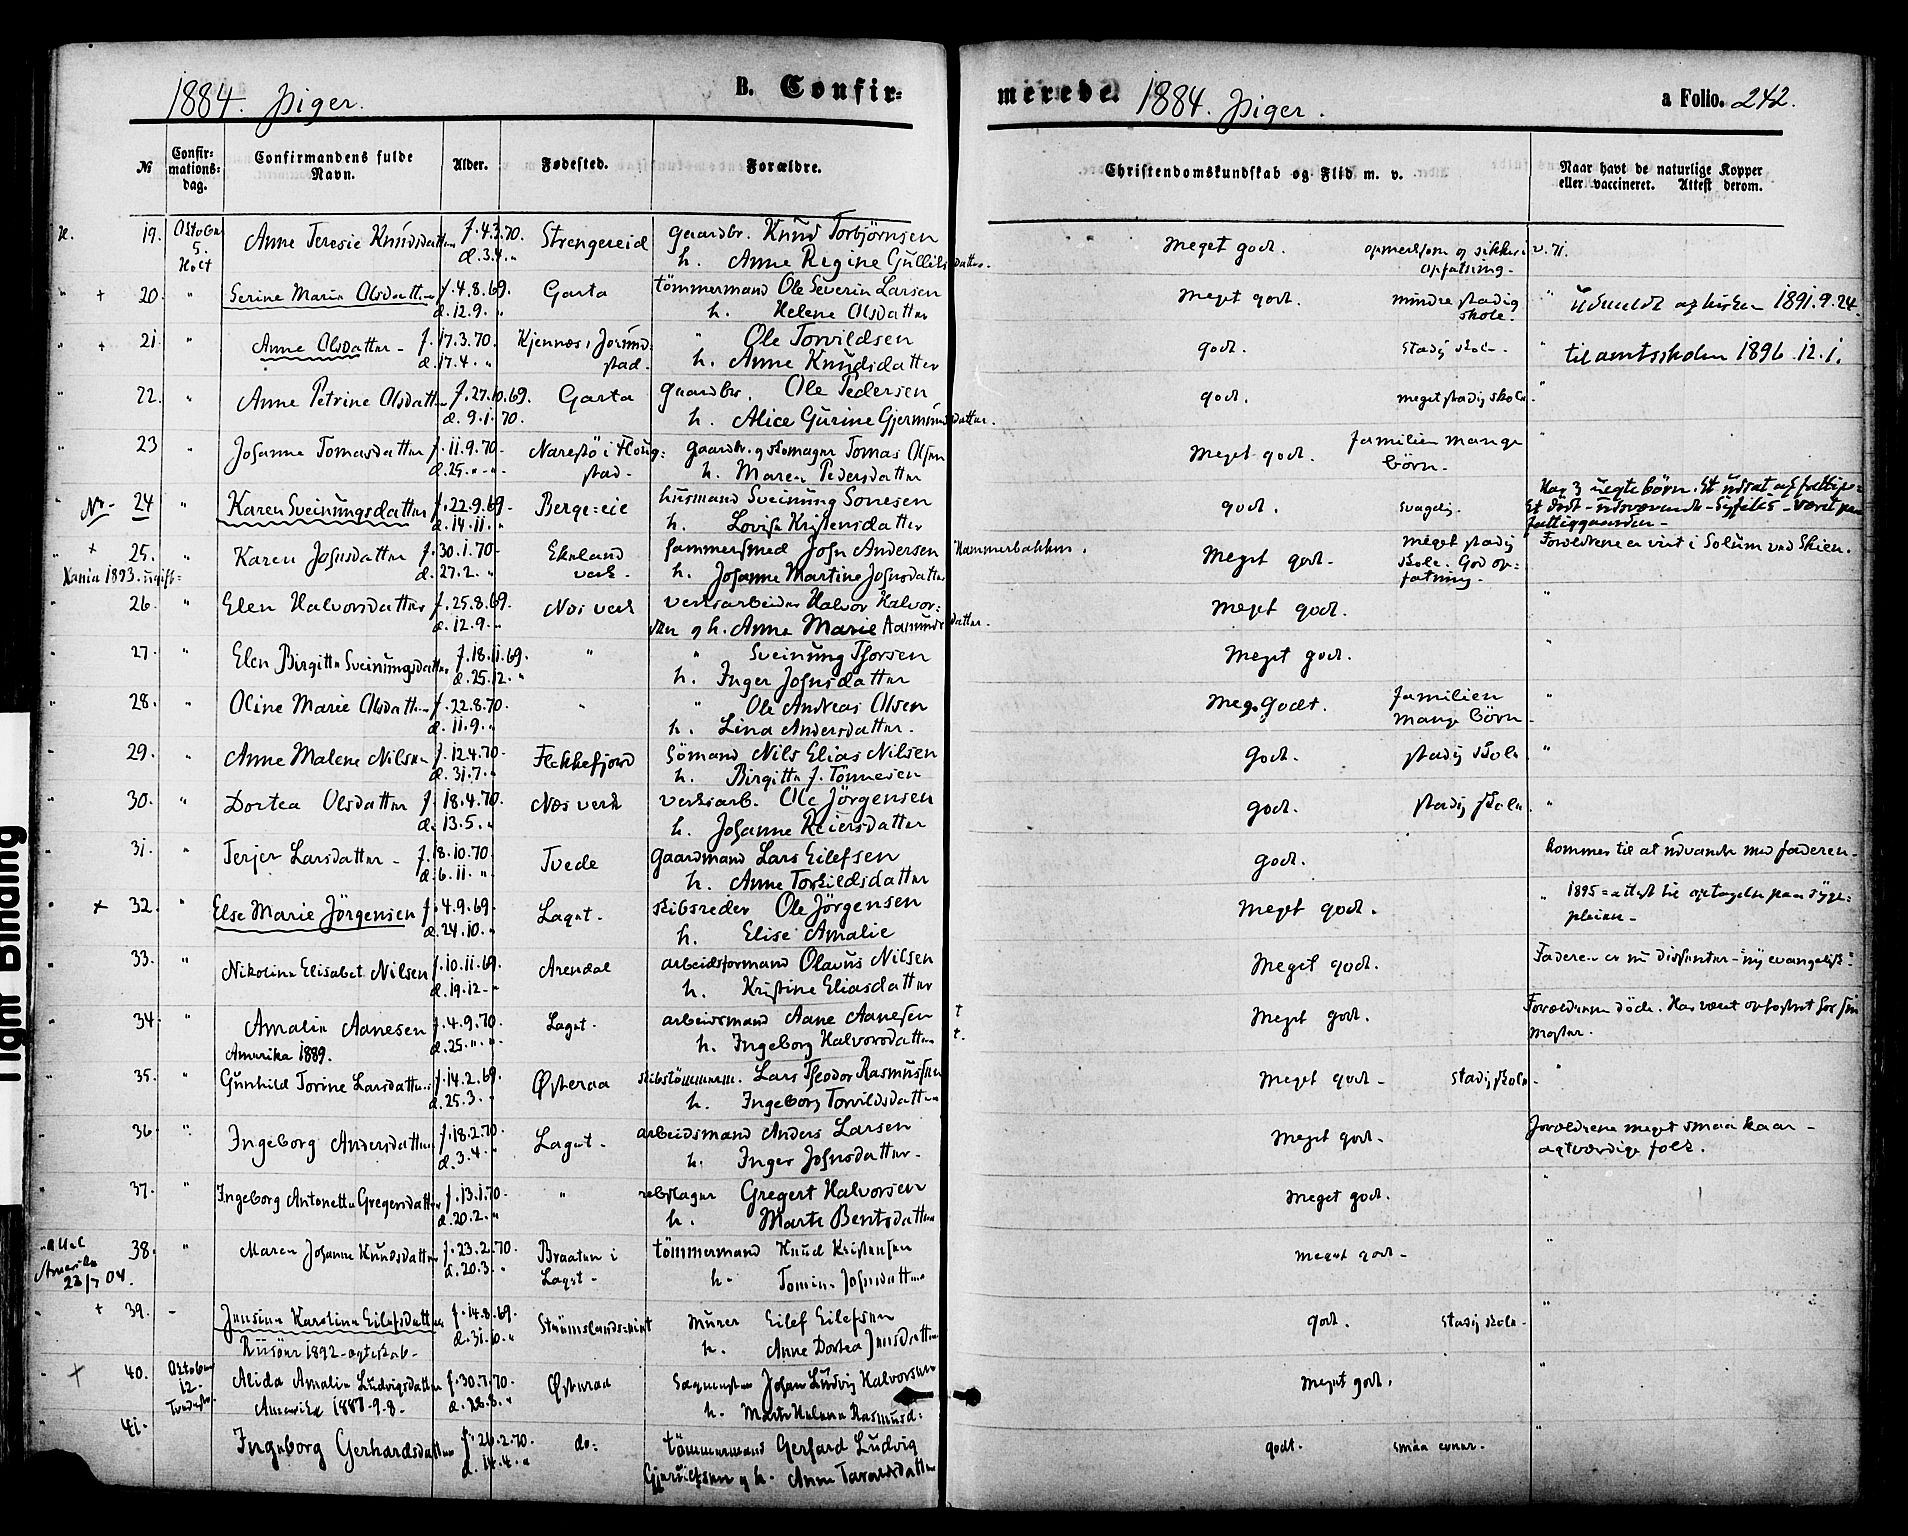 1884. Piger.
B. Confir=
merede.
1884. Piger.
a Folio. 242.
№
Confir=
mations=
dag.
Confirmandens fulde
Navn.
Alder.
Fødested.
Forældre.
Christendomskundskab og Flid m. v.
Naar havt de naturlige Kopper
eller vaccineret. Attest derom.
19. Oktober 5. Holt Anne Teresie Knudsdatter f. 4.3.70. Strengereid gaardbr. Knud Torbjörnsen Meget godt. opmerksom og sikker v. H.
d. 3.4. " h. Anne Regine Gulliksdatter. opfatning.
+ 20. " Serine Maria Olsdatter f. 4.8.69. Garta tömmermand Ole Severin Larsen Meget godt. mindre stadig " Udmeldt af kirken 1891.9.24.
d. 12.9. " h. Helene Olsdatter skole.
+ 21. " Anne Olsdatter - f. 17.3.70. Kjennes, Jorund= " Ole Torvildsen godt. stadig skole. " til amtsskolen 1896.12.1.
d. 17.4. " stad. h. Anne Knudsdatter
22. " Anne Petrine Olsdatter f. 27.10.69. Garta gaardbr. Ole Pedersen godt. meget stadig skole. "
d. 9.1.70. h. Alice Gurine Gjermundsdatter.
23 " Johanne Tomasdatter f. 11.9.70. Narestö i Floug= gaardbr. og skomager Tomas Olsen Meget godt. familien mange "
d. 25. " - " stad - h. Maren Pedersdatter börn -
Nr - 24 " Karen Sveinungsdatter f. 22.9.69. Berge=eie husmand Sveinung Sonesen godt. svagelig. Har 3 uegte börn. Et udsat af fattigv=
d. 14.11. " h. Lovise Kristensdatter Et dödt - nedsværende - Syfilis - været paa
fattiggaarden -
+ 25. " Karen Johnsdatter f. 30.1.70- Ekeland hammersmed John Andersen Hammerbakken. Meget godt. meget stadig Forældrene er vist i Solum ved Skien.
Kania 1893. ugift= d. 27.2. " verk. h. Johanne Martine Johnsdatter skole. God op=
fatning.
26. " Elen Halvorsdatter f. 25.8.69. Nes verk verksarbeider Halvor Halvor= Meget godt. "
d. 12.9. " sen og h. Anne Marie Aamundsdatter.
27. " Elen Birgitte Sveinungsdatter f. 18.11.69. " " Sveinung Thorsen Meget godt. "
d. 25.12. " h. Inger Johnsdatter
28. " Oline Marie Olsdatter f. 22.8.70. " " Ole Andreas Olsen Meg. Godt. familien "
d. 11.9. " h. Lina Andersdatter. mange börn -
29. " Anne Malene Nilsen f. 12.4.70- Flekkefjord Sömand Nils Elias Nilsen Godt. stadig skole "
d. 31.7. " h. Birgitte f. Tönnesen
30. " Dortea Olsdatter f. 18.4.70. Nes verk verksarb. Ole Jörgensen godt. stadig skole. "
d. 13.5. " h. Johanne Reiersdatter
31. " Terjer Larsdatter - f. 8.10.70. Tvede Gaardmand Lars Eilefsen godt. kommer til at udvandre med faderen -
d. 6.11. " h. Anne Torkildsdatter
+ 32. " Else Marie Jörgensen f. 4.9.69. Laget. skibsreder Ole Jörgensen Meget godt. " 1895 = attest til optagelse paa syge=
d. 24.10. " h. Elise Amalie pleien -
33. " Nikoline Elisabet Nilsen f. 10.11.69. Arendal arbeidsformand Olavus Nilsen Meget godt. Faderen er nu dissenter - "ny evangelisk"
d. 19.12- " h. Kristine Eliasdatter
34. " Amalie Aanesen f. 4.9.70. Laget. arbeidsmand Aane Aanesen † Meget godt. Forældrene döde. Har været opfostret hos sin
Amerika 1889. d. 25. " " h. Ingeborg Halvorsdatter †. Moster.
35. " Gunhild Torine Larsdatter f. 14.2.69. Østeraa skibstömmerm. Lars Theodor Rasmussen Meget godt - stadig skole - "
d. 25.3. " h. Ingeborg Torvildsdatter
36 " Ingeborg Andersdatter f. 18.2.70. Laget - arbeidsmand Anders Larsen Meget godt. Forældrene meget smaa kaar -
d. 3.4. " h. Inger Johnsdatter - agtværdige folk.
37. " Ingeborg Antonette Gregersdatter f. 13.1.70- " rebslager Gregert Halvorsen Meget godt. "
d. 20.2. " h. Marte Bentsdatter
Attest 38. " Maren Johanne Knudsdatter f. 23.2.70. Braaten i tömmermand Knud Kristensen Meget godt - "
Amerika d. 20.3. " Laget - h - Tomine Johnsdatter
23/7 04.
+ 39. - Jensine Karoline Eilefsdatter f. 14.8.69. Strömslands=eiet Murer Eilef Eilefsen godt. stadig skole - "
Riisöer 1892 - egteskab - d. 31.10. " h. Anne Dortea Jensdatter
+ 40. Oktober 12. Alida Amalie Ludvigsdatter f. 30.7.70. Østeraa Johan Ludvig Halvorsen Meget godt. "
Amerika 1887-9-8- d. 28.8. " h. Marte Helene Rasmusd=
41. Ingeborg Gerhardsdatter f. 26.2.70. do: tömmermand Gerhard Ludvig godt. smaa evner. "
d. 14.4. " og h. Anne Taraldsdatter
Tight Binding